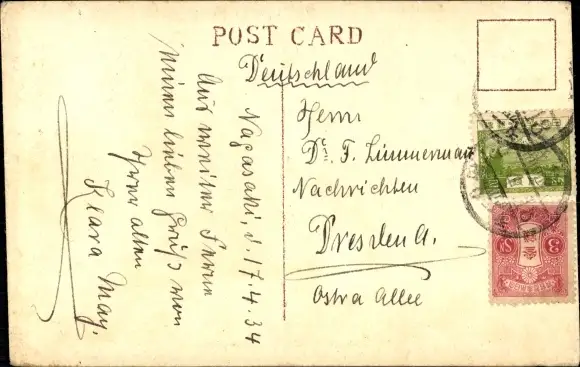 POST CARD
Deutschland
Nagasaki, d. 17.4.34
Aus weiter Ferne
einen lieben Gruß von
Ihrer alten
Klara May.
Herrn
Dr. F. Zimmermann
Nachrichten
Dresden A.
Ostra Allee
3